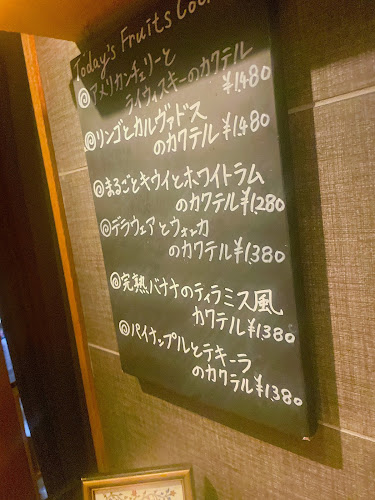 Today's Fruits Coc
◎アメリカンチェリーと
ライウィスキーのカクテル
¥1,480
◎リンゴとカルヴァドス
のカクテル¥1480
◎まるごとキウイとホワイトラム
のカクテル¥1,280
◎デラウェアとウォッカ
のカクテル¥1380
◎完熟バナナのティラミス風
カクテル¥1380
◎パイナップルとテキーラ
のカクテル¥1380